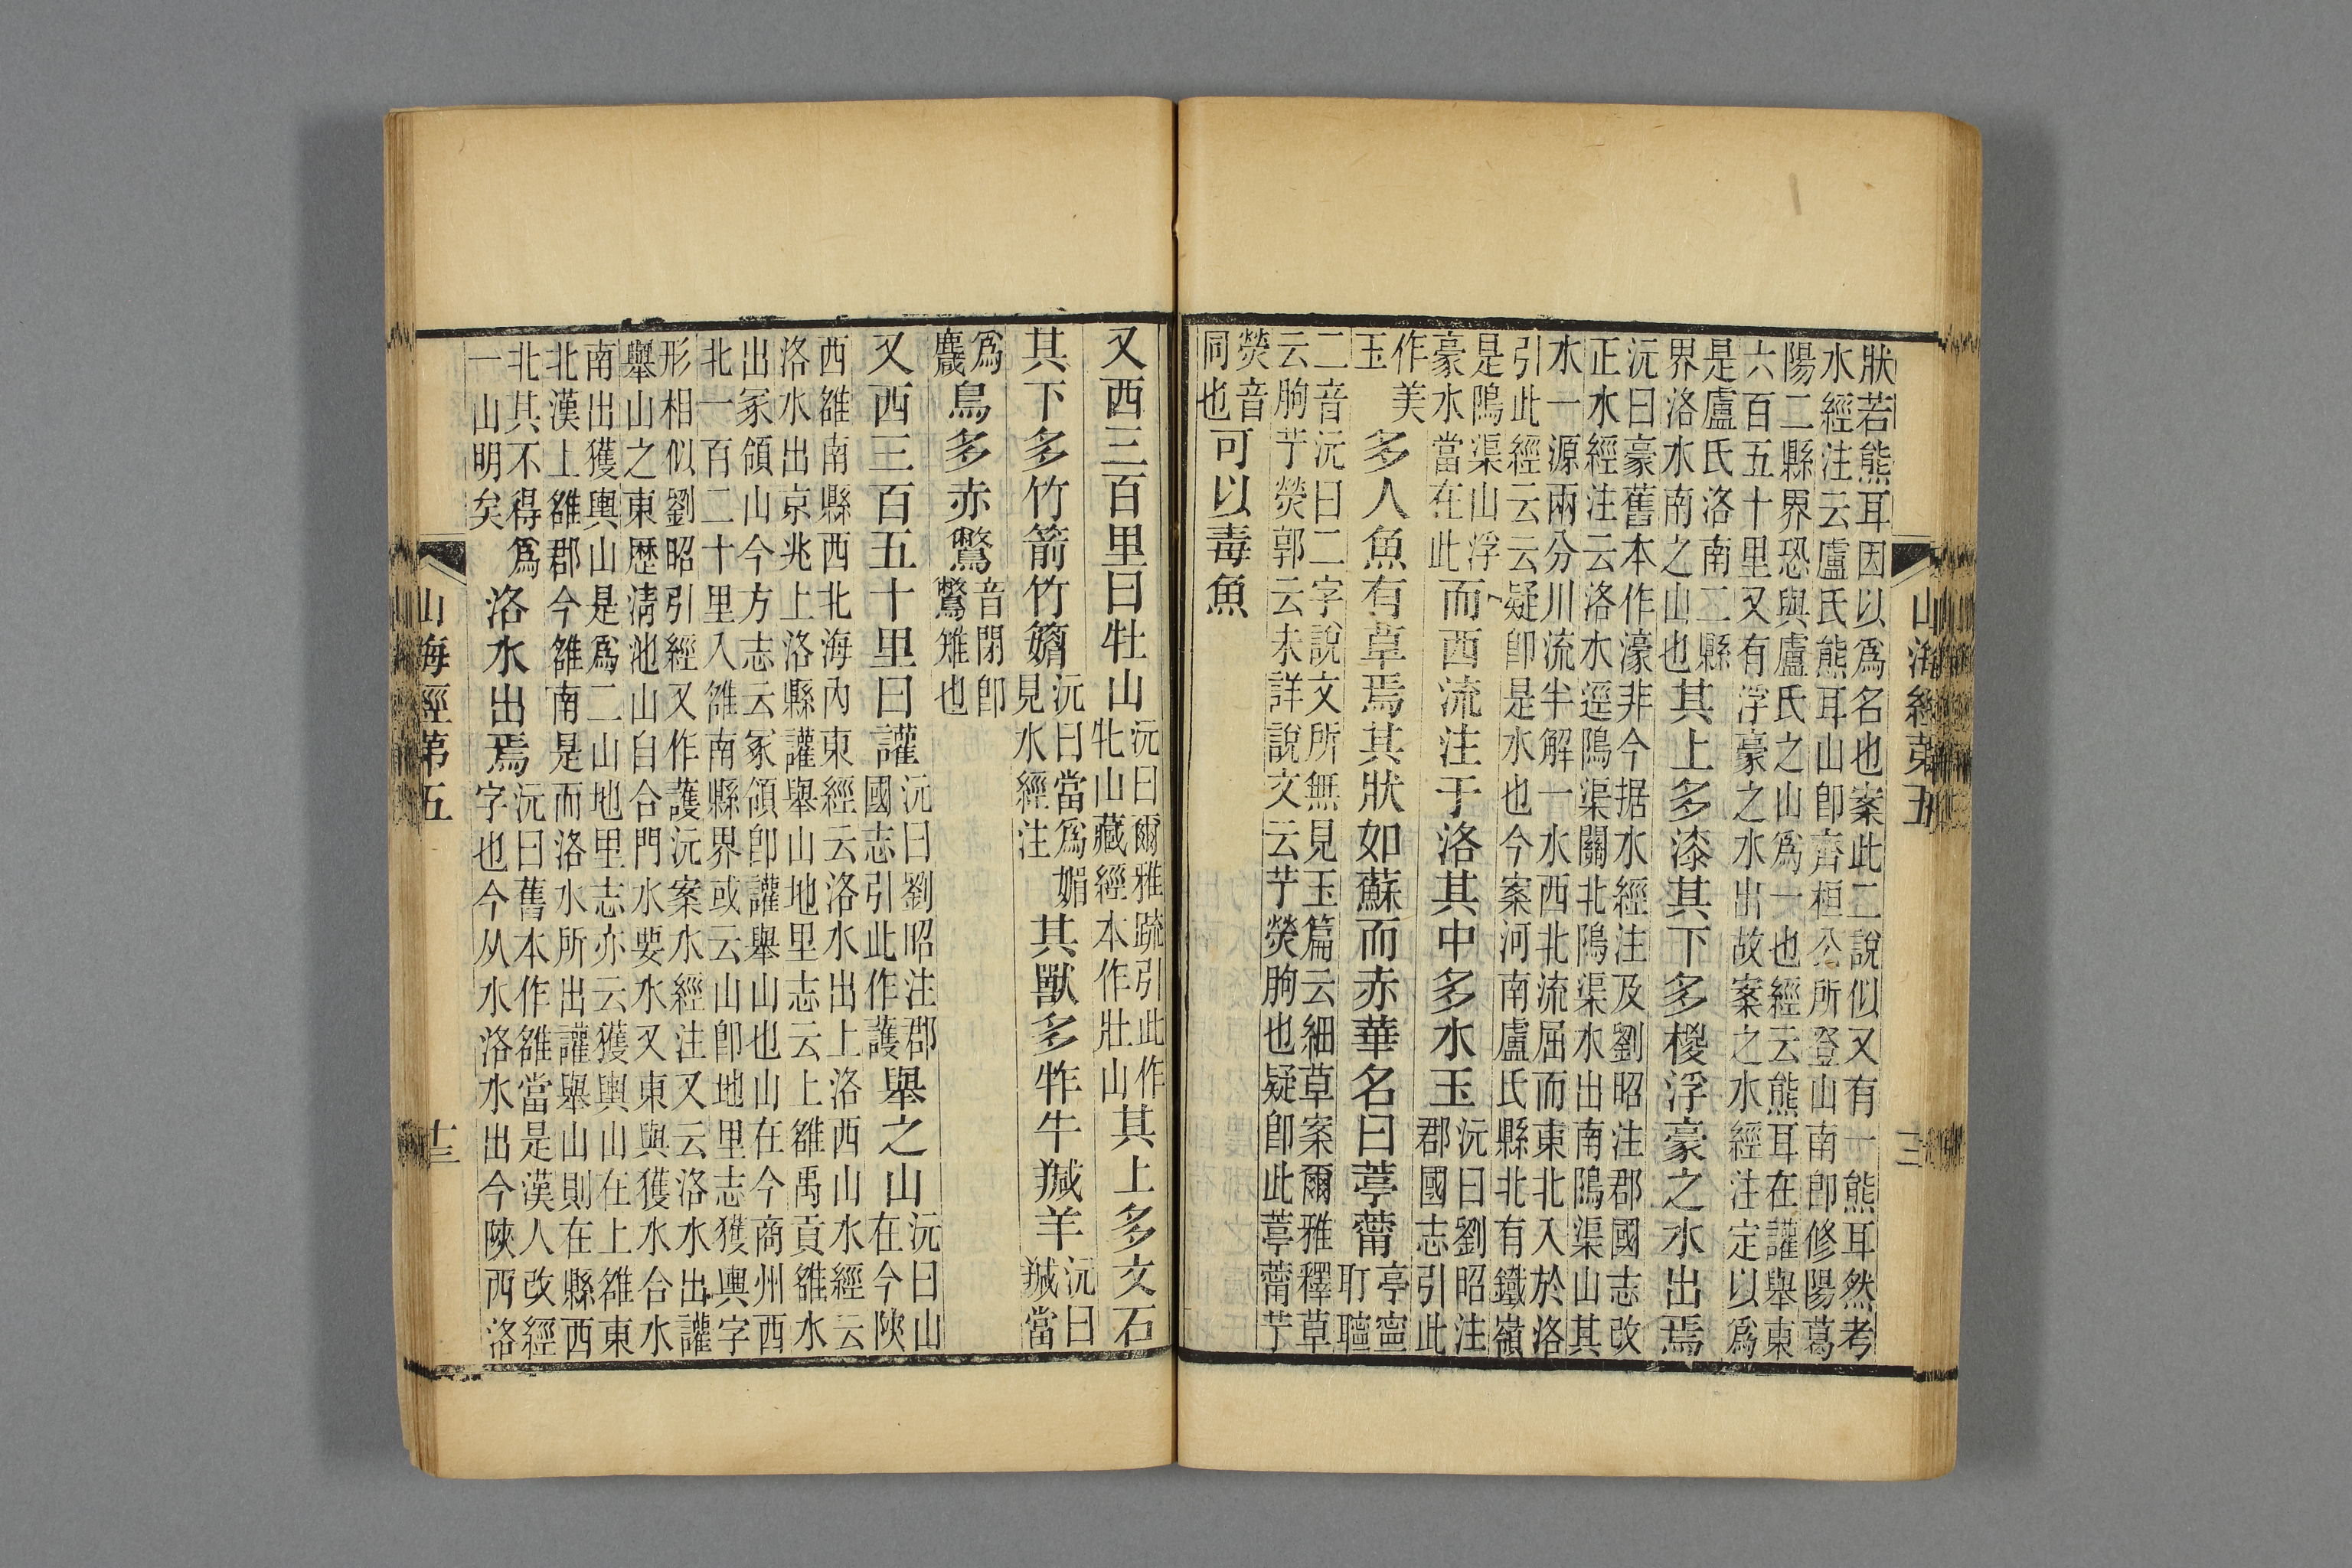 山海經第五
三
狀若熊耳因以爲名也案此二說似又有一熊耳然考
水經注云盧氏熊耳山卽齊桓公所登山南卽修陽葛
陽二縣界恐與盧氏之山爲一也經云熊耳在讙舉東
六百五十里又有浮豪之水出故案之水經注定以爲
是盧氏洛南二縣界洛水南之山也其上多漆其下多椶浮豪之水出焉
沅曰豪舊本作濠非今据水經注及劉昭注郡國志改
正水經注云洛水逕隝渠關北隝渠水出南隝渠山其
水一源兩分川流半解一水西北流屈而東北入於洛
引此經云云疑卽是水也今案河南盧氏縣北有鐵嶺
是隝渠山浮豪水當在此而西流注于洛其中多水玉沅曰劉昭注郡國志引此
作美玉多人魚有草焉其狀如蘇而赤華名曰葶薴亭寧耵聹
二音沅曰二字說文所無見玉篇云細草案爾雅釋草
云朐艼熒郭云未詳說文云艼熒朐也疑卽此葶薴艼
熒音同也可以毒魚
又西三百里曰牡山沅曰爾雅疏引此作牝山藏經本作壯山其上多文石
其下多竹箭竹䉋沅曰當爲媚見水經注其獸多㸲牛羬羊沅曰羬當
爲麙鳥多赤鷩音閉卽鷩雉也
又西三百五十里曰讙沅曰劉昭注郡國志引此作護舉之山沅曰山在今陜
西雒南縣西北海內東經云洛水出上洛西山水經云
洛水出京兆上洛縣讙舉山地里志云上雒禹貢雒水
出冢領山今方志云冢領卽讙舉山也山在今商州西
北一百二十里入雒南縣界或云山卽地里志獲輿字
形相似劉昭引經又作護沅案水經注又云洛水出讙
舉山之東歷淸池山自合門水要水又東與獲水合水
南出獲輿山是爲二山地里志亦云獲輿山在上雒東
北漢上雒郡今雒南是而洛水所出讙舉山則在縣西
北其不得爲一山明矣洛水出焉沅曰舊本作雒當是漢人改經字也今从水洛水出今陜西洛
山海經第五
十三